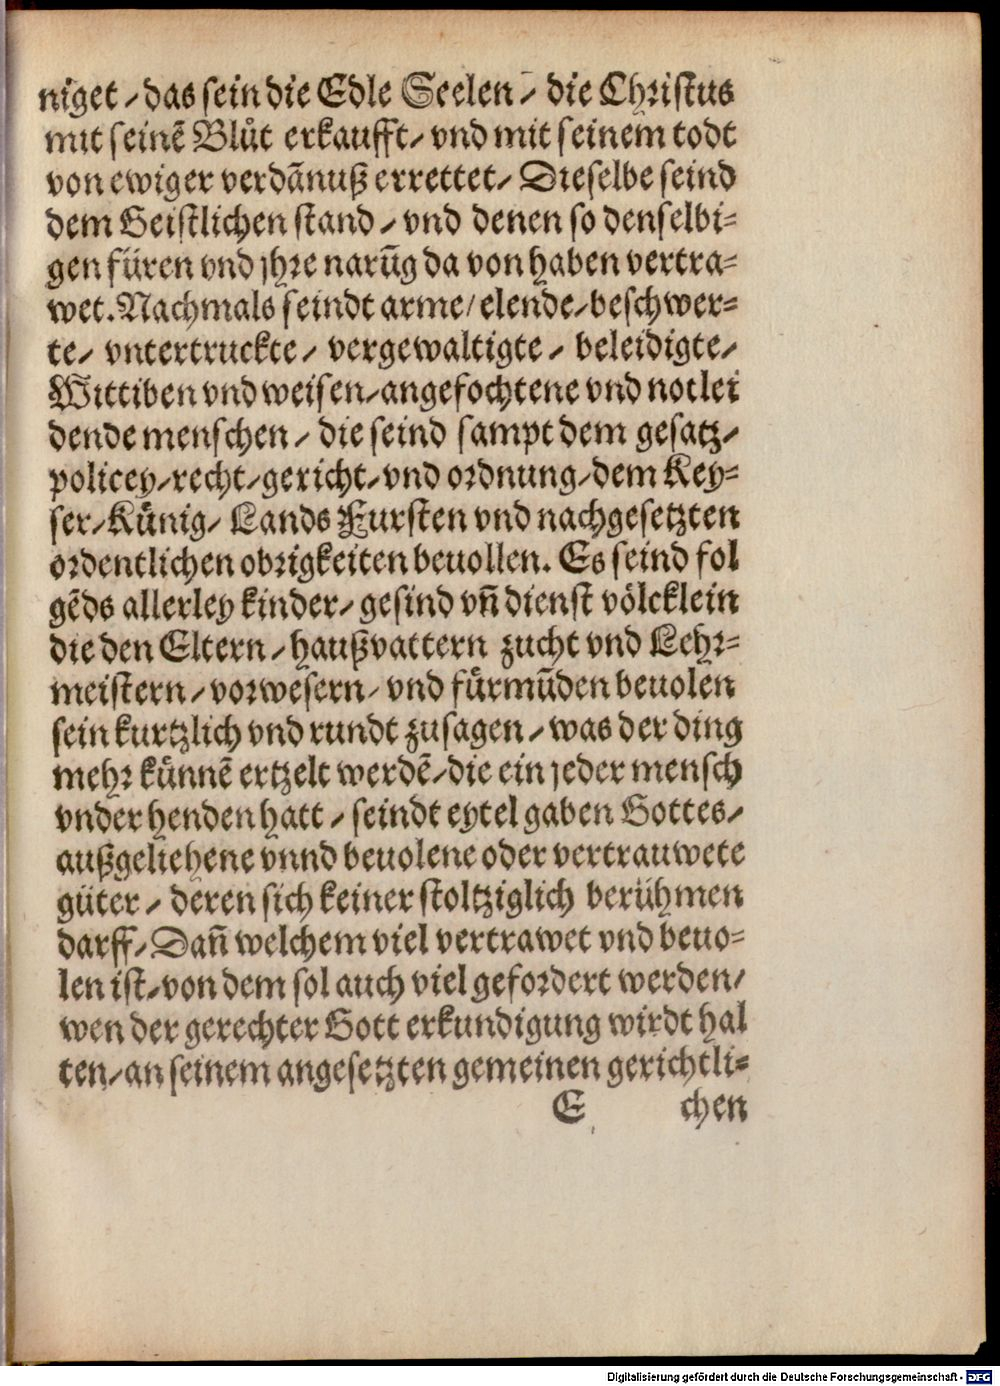 niget / das sein die Edle Seelen / die Christus
mit seinē Blůt erkaufft / vnd mit seinem todt
von ewiger verdānuß errettet / Dieselbe seind
dem Geistlichen stand / vnd denen so denselbi⸗
gen füren vnd jhre narūg da von haben vertra⸗
wet. Nachmals seindt arme / elende / beschwer⸗
te / vntertruckte / vergewaltigte / beleidigte /
Wittiben vnd weisen / angefochtene vnd notlei
dende menschen / die seind sampt dem gesatz /
policey / recht / gericht / vnd ordnung / dem Key⸗
ser / Künig / Lands Fursten vnd nachgesetzten
ordentlichen obrigkeiten beuollen. Es seind fol
gēds allerley kinder / gesind vn̄ dienst völcklein
die den Eltern / haußvattern zucht vnd Lehr⸗
meistern / vorwesern / vnd fürmūden beuolen
sein kurtzlich vnd rundt zusagen / was der ding
mehr künnē ertzelt werdē / die ein jeder mensch
vnder henden hatt / seindt eytel gaben Gottes /
außgeliehene vnnd beuolene oder vertrauwete
güter / deren sich keiner stoltziglich berühmen
darff / Dan̄ welchem viel vertrawet vnd beuo⸗
len ist / von dem sol auch viel gefordert werden /
wen der gerechter Gott erkundigung wirdt hal
ten / an seinem angesetzten gemeinen gerichtli⸗
E chen
Digitalisierung gefördert durch die Deutsche Forschungsgemeinschaft - DFG